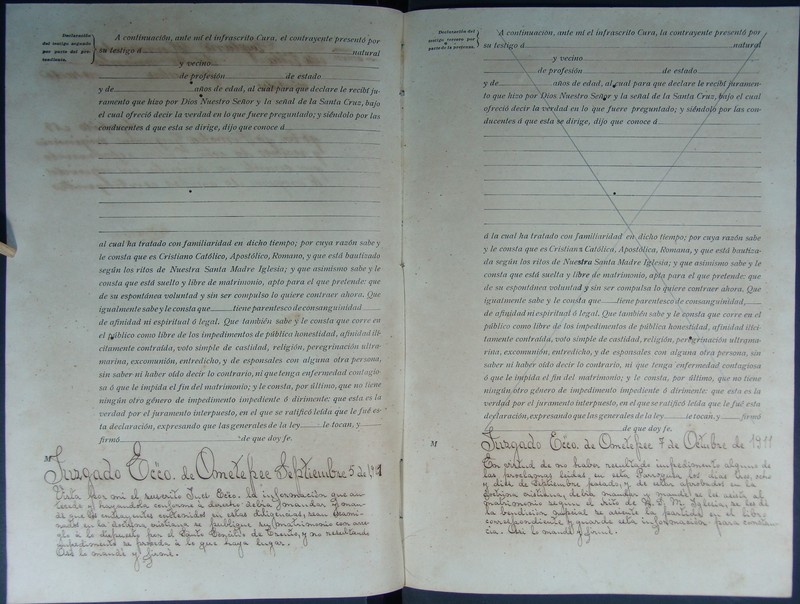 Declaración
del testigo segundo
por parte del pre-
tendiente.
A continuación, ante mí el infrascrito Cura, el contrayente presentó por
su testigo á natural
y vecino
de profesión de estado
y de años de edad, al cual para que declare le recibí ju-
ramento que hizo por Dios Nuestro Señor y la señal de la Santa Cruz, bajo
el cual ofreció decir la verdad en lo que fuere preguntado; y siéndolo por las
conducentes á que esta se dirige, dijo que conoce á
al cual ha tratado con familiaridad en dicho tiempo; por cuya razón sabe y
le consta que es Cristiano Católico, Apostólico, Romano, y que está bautizado
según los ritos de Nuestra Santa Madre Iglesia; y que asimismo sabe y le
consta que está suelto y libre de matrimonio, apto para el que pretende: que
de su espontánea voluntad y sin ser compulso lo quiere contraer ahora. Que
igualmente sabe y le consta que tiene parentesco de consanguinidad
de afinidad ni espiritual ó legal. Que también sabe y le consta que corre en
el público como libre de los impedimentos de público honestidad, afinidad ilí-
citamente contraída, voto simple de castidad, religión, peregrinación ultra-
marina, excomunión, entredicho, y de esponsales con alguna otra persona,
sin saber ni haber oído decir lo contrario, ni que tenga enfermedad contagio-
sa ó que le impida el fin del matrimonio; y le consta, por último, que no tiene
ningún otro género de impedimento impediente ó dirimente: que esta es la
verdad por el juramento interpuesto, en el que se ratificó leída que le fué es-
ta declaración, expresando que las generales de la ley le tocan, y
firmó de que doy fe.
Juzgado Ecco. de Ometepec Septiembre 5 de
Vista por mi el suscrito Juez Ecco. la información que an-
tecede y hayandola conforme a derecho debia mandar y man-
do que los contrayentes contenidos en estas diligencias, sean exami-
nados en la doctrina cristiana se publique su matrimonio con arre-
glo á lo dispuesto por el Santo Concilio de Trento, y no resultando
impedimento se proceda á lo que haya lugar.
Así lo mandé y firmé.
Declaración del
testigo tercero por
parte de la pretensa.
A continuación, ante mí el infrascrito Cura, la contrayente presentó por
su testigo á natural
y vecino
de profesión de estado
y de años de edad, al cual para que declare le recibí juramen-
to que hizo por Dios Nuestro Señor y la señal de la Santa Cruz, bajo el cual
ofreció decir la verdad en lo que fuere preguntado; y siéndolo por las con-
ducentes á que esta se dirige, dijo que conoce á
á la cual ha tratado con familiaridad en dicho tiempo; por cuya razón sabe
y le consta que es Cristiana Católica, Apostólica, Romana, y que está bautiza-
da según los ritos de Nuestra Santa Madre Iglesia; y que asimismo sabe y le
consta que está suelta y libre de matrimonio, apta para el que pretende: que
de su espontánea voluntad y sin ser compulsa lo quiere contraer ahora. Que
igualmente sabe y le consta que tiene parentesco de consanguinidad,
de afinidad ni espiritual ó legal. Que también sabe y le consta que corre en el
público como libre de los impedimentos de pública honestidad, afinidad ilíci-
tamente contraída, voto simple de castidad, religión, peregrinación ultrama-
rina, excomunión, entredicho, y de esponsales con alguna otra persona, sin
saber ni haber oído decir lo contrario, ni que tenga enfermedad contagiosa
ó que le impida el fin del matrimonio; y le consta, por último, que no tiene
ningún otro género de impedimento impediente ó dirimente: que esta es la
verdad por el juramento interpuesto, en el que se ratificó leída que le fué esta
declaración, expresando que las generales de la ley le tocan, y firmó
de que doy fe.
M
Juzgado Ecco. de Ometepec 7 de Octubre de 1911
En virtud de no haber resultado impedimento alguno de
las proclamas leidas en esta Parroquia los dias tres, ocho
y diez de Septiembre pasado, y de estar aprobados en la
doctrina cristiana, debia mandar y mandé se les asista al
matrimonio segun el rito de N. S. M. Iglesia, se les dé
la bendición nupcial, se asiente la partida en el libro
correspondiente y guarde esta información para constan-
cia. Así lo mandé y firmé.